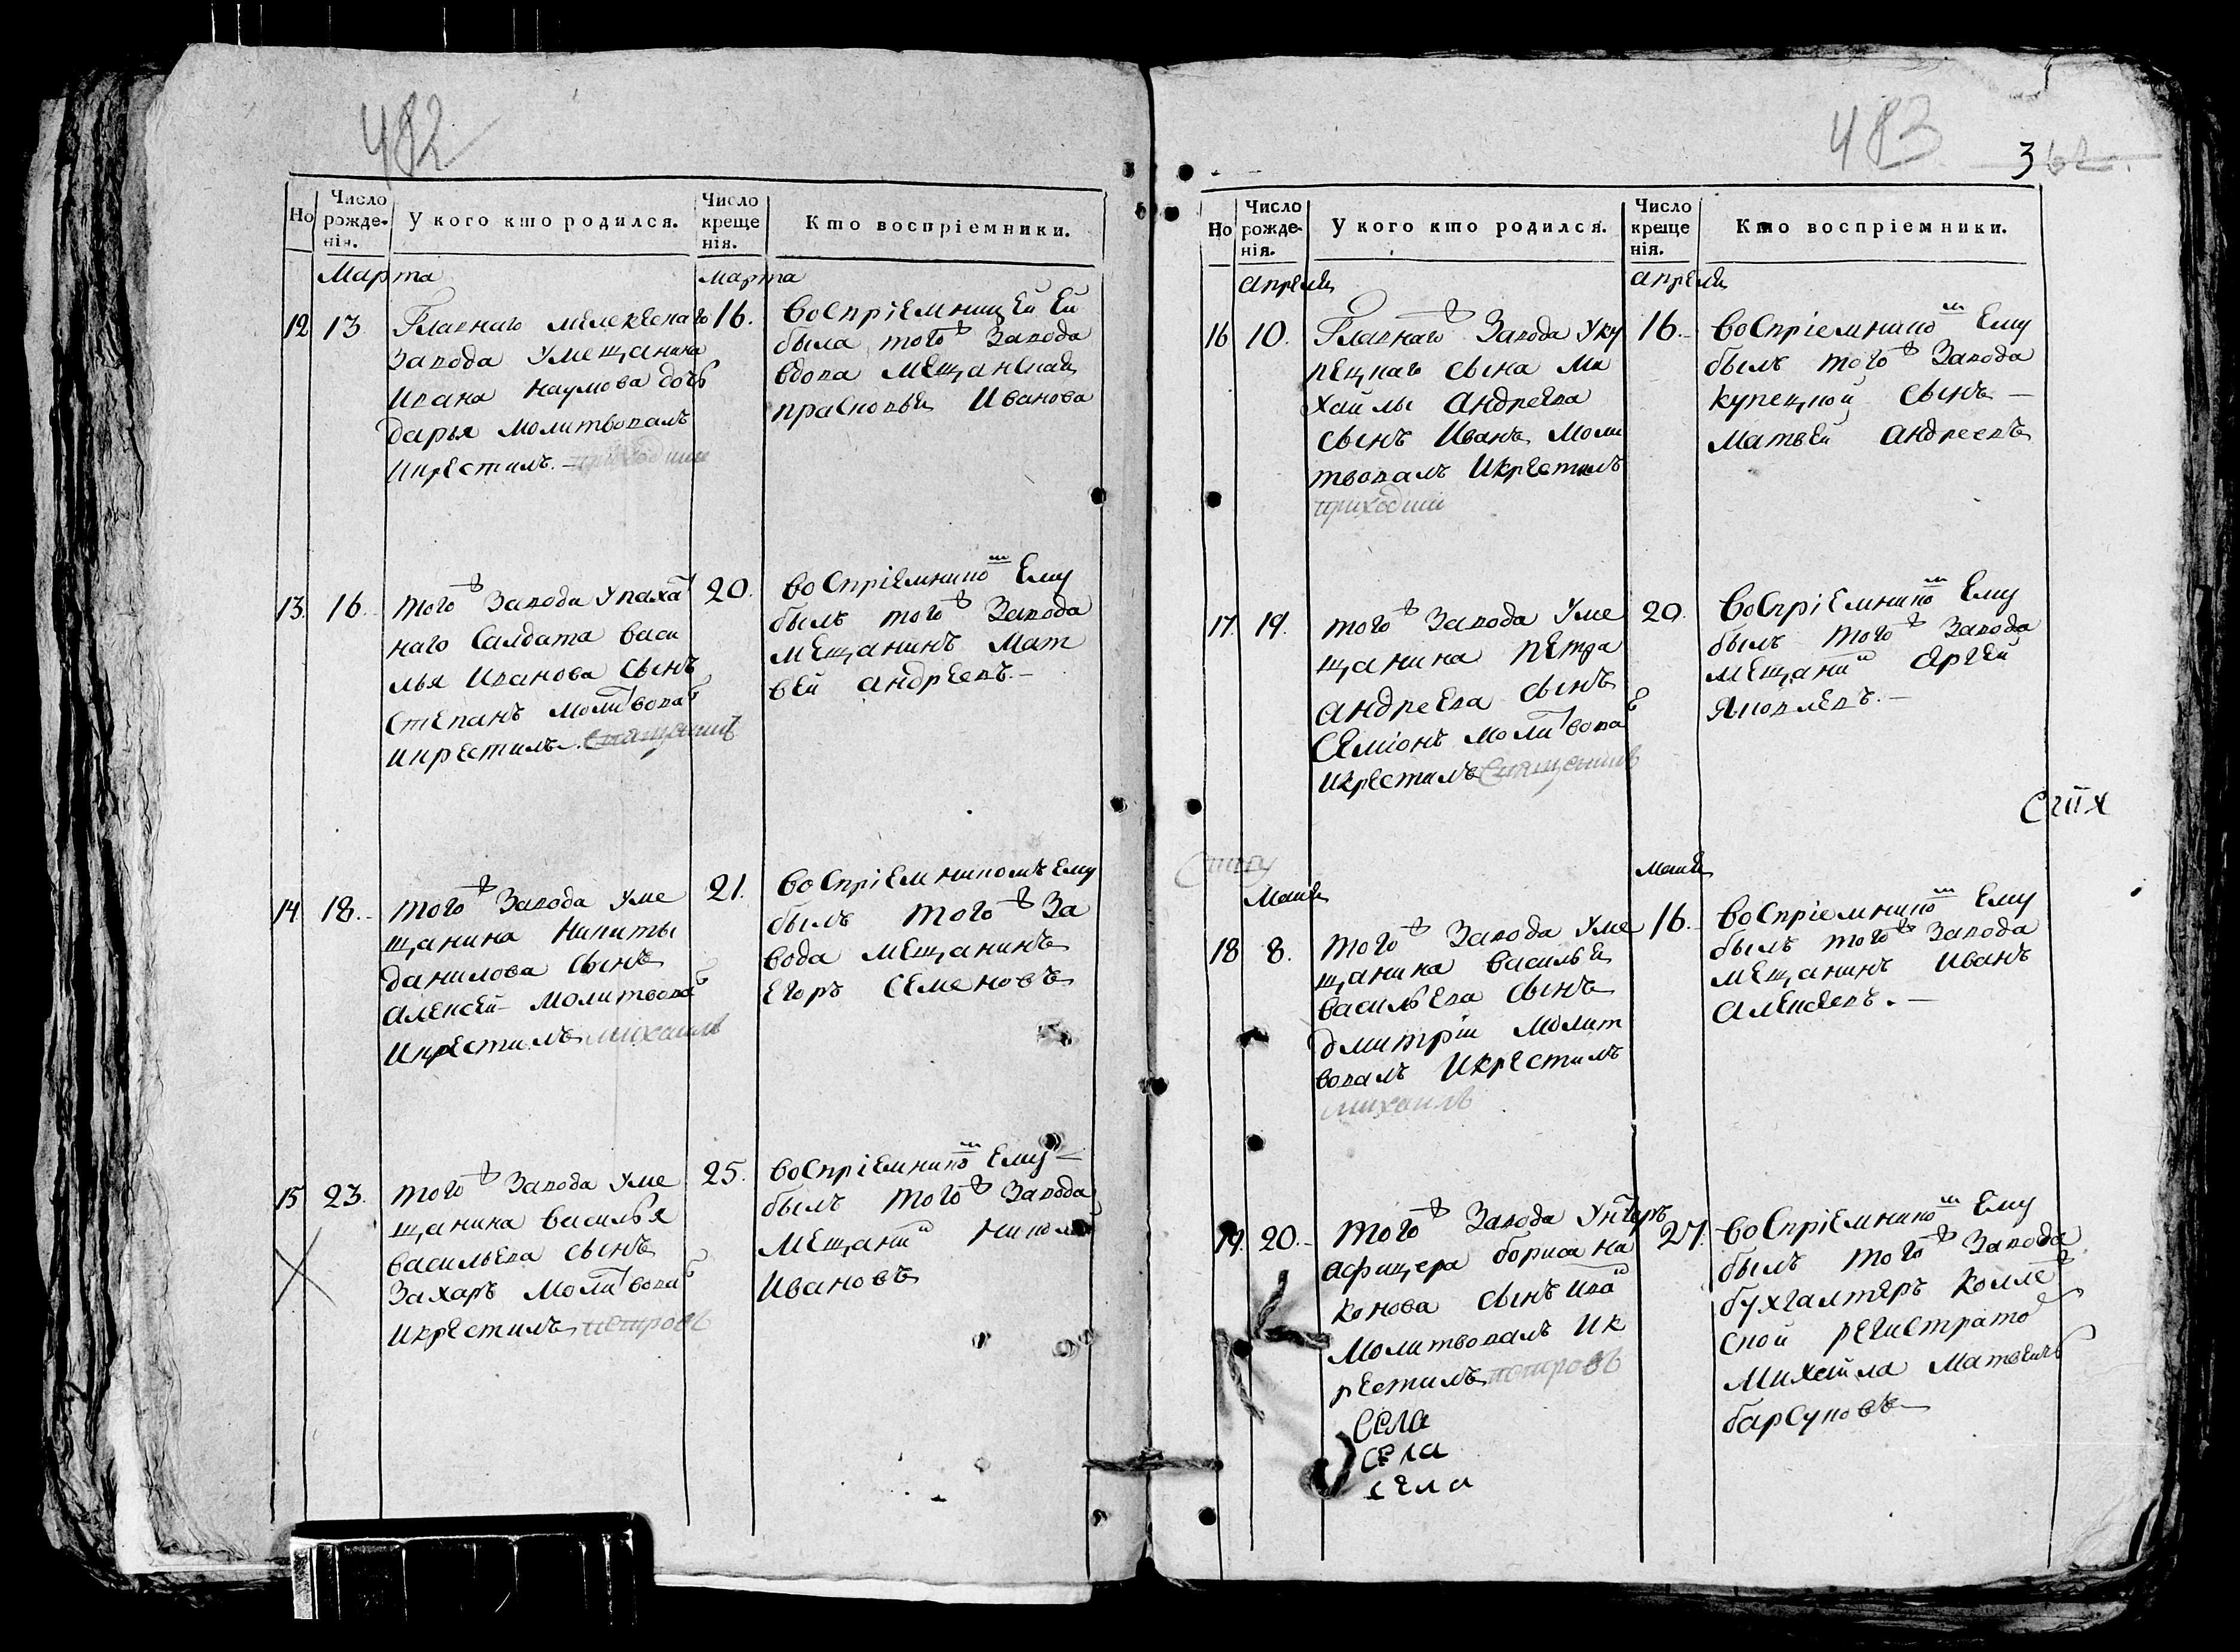 482
Но
Число рожде-нія.
У кого кто родился.
Число креще нія.
Кто воспріемники.
Марта
марта
12
13.
Главнаго мелекескаго
завода Умещанина
Ивана Наумова дочь
дарья молитвовалъ
икрестилъ.
16.
воспріемницей Ей
была того ѣ Завода
вдова мещанская
прасковья Иванова
13.
16.
того ѣ Завода У
наго Салдата васи
лья Иванова сынъ
степанъ молитвова
икрестилъ. священникъ
20.
воспріемнико м Ему
былъ того ѣ Завода
мещанинъ Мат
вей андреевъ.-
14
18.-
того ѣ Завода Уме
щанина Никиты
данилова сынъ
алексей- молитвова
икрестилъ михаилъ
21.
воспріемникомъ Ему
былъ того ѣ За
вода мещанинъ
Егоръ Семеновъ
15
23.
того ѣ Завода Уме
щанина василья
васильева сынъ
Захаръ молитвова
икрестилъ петровъ
25.
воспріемнико м Ему-
былъ того ѣ Завода
мещани н николай
Ивановъ
483
3 62.
Но
Число рожде-нія.
У кого кто родился.
Число креще нія.
Кто воспріемники.
апреля
апреля
16
10.
Главнаго ѣ Завода Уку
пецкаго сына Ми
хайлы андреева
сынъ Иванъ моли
твовалъ Икрестилъ
16.-
воспріемнико м Ему
былъ того ѣ Завода
купецкой сынъ -
матвей андреевъ
17.
19.
того ѣ Завода Уме
щанина петра
андреева сынъ
Семіонъ молитвова
икрестилъ священникъ
20.
воспріемнико м Ему
былъ того ѣ Завода
мещани н сергей
яковлевъ.-
маия
маия
18
8.
того ѣ Завода Уме
щанина василья
васильева сынъ
дмитріи молит
вовалъ Икрестилъ
михаилъ
16.
воспріемнико м Ему
былъ того ѣ Завода
мещанинъ иванъ
алексеевъ.-
19.
20.-
того ѣ Завода Унтеръ
афицера бориса на
конова сынъ ива н
молитвовалъ ик
рестилъ петровъ
Села
села
села
27.
воспріемнико м Ему
былъ того ѣ Завода
бухгалтеръ колле
ской регистрато
Михаила матвеичь
барсуковъ